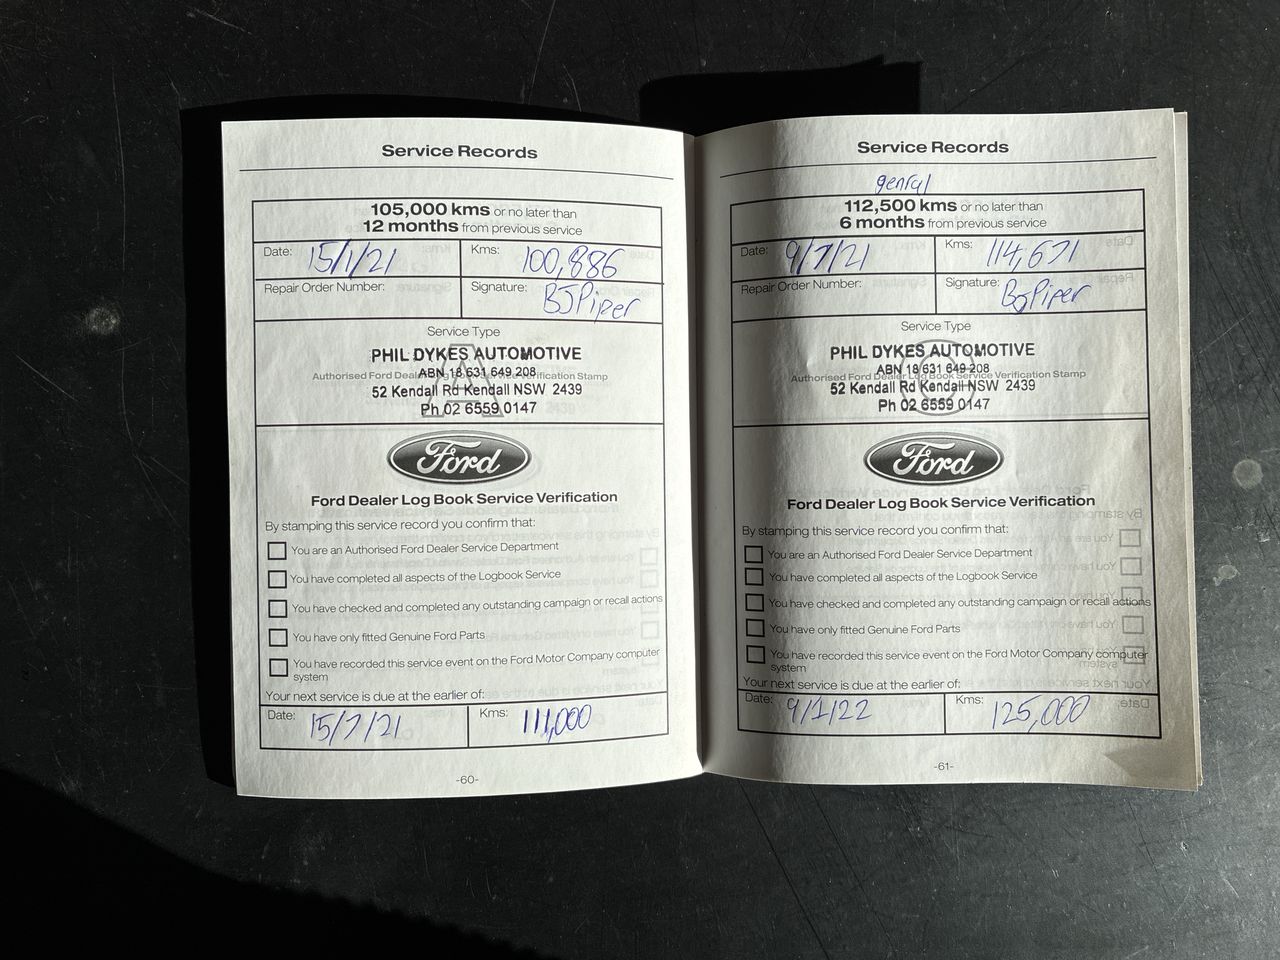 Service Records
105,000 kms or no later than
12 months from previous service
Date: 15/1/21 Kms: 100,886
Repair Order Number: Signature: BJPiper
Service Type
PHIL DYKES AUTOMOTIVE
ABN 18 631 649 208
Authorised Ford Dealer Log Book Service Verification Stamp
A
52 Kendall Rd Kendall NSW 2439
Ph 02 6559 0147
Ford
Ford Dealer Log Book Service Verification
By stamping this service record you confirm that:
You are an Authorised Ford Dealer Service Department
You have completed all aspects of the Logbook Service
You have checked and completed any outstanding campaign or recall actions
You have only fitted Genuine Ford Parts
You have recorded this service event on the Ford Motor Company computer
system
Your next service is due at the earlier of:
Date: 15/7/21 Kms: 111,000
-60-
Service Records
genral
112,500 kms or no later than
6 months from previous service
Date: 9/7/21 Kms: 114,671
Repair Order Number: Signature: BJPiper
Service Type
PHIL DYKES AUTOMOTIVE
ABN 18 631 649 208
Authorised Ford Dealer Log Book Service Verification Stamp
52 Kendall Rd Kendall NSW 2439
Ph 02 6559 0147
Ford
Ford Dealer Log Book Service Verification
By stamping this service record you confirm that:
You are an Authorised Ford Dealer Service Department
You have completed all aspects of the Logbook Service
You have checked and completed any outstanding campaign or recall actions
You have only fitted Genuine Ford Parts
You have recorded this service event on the Ford Motor Company computer
system
Your next service is due at the earlier of:
Date: 9/1/22 Kms: 125,000
-61-